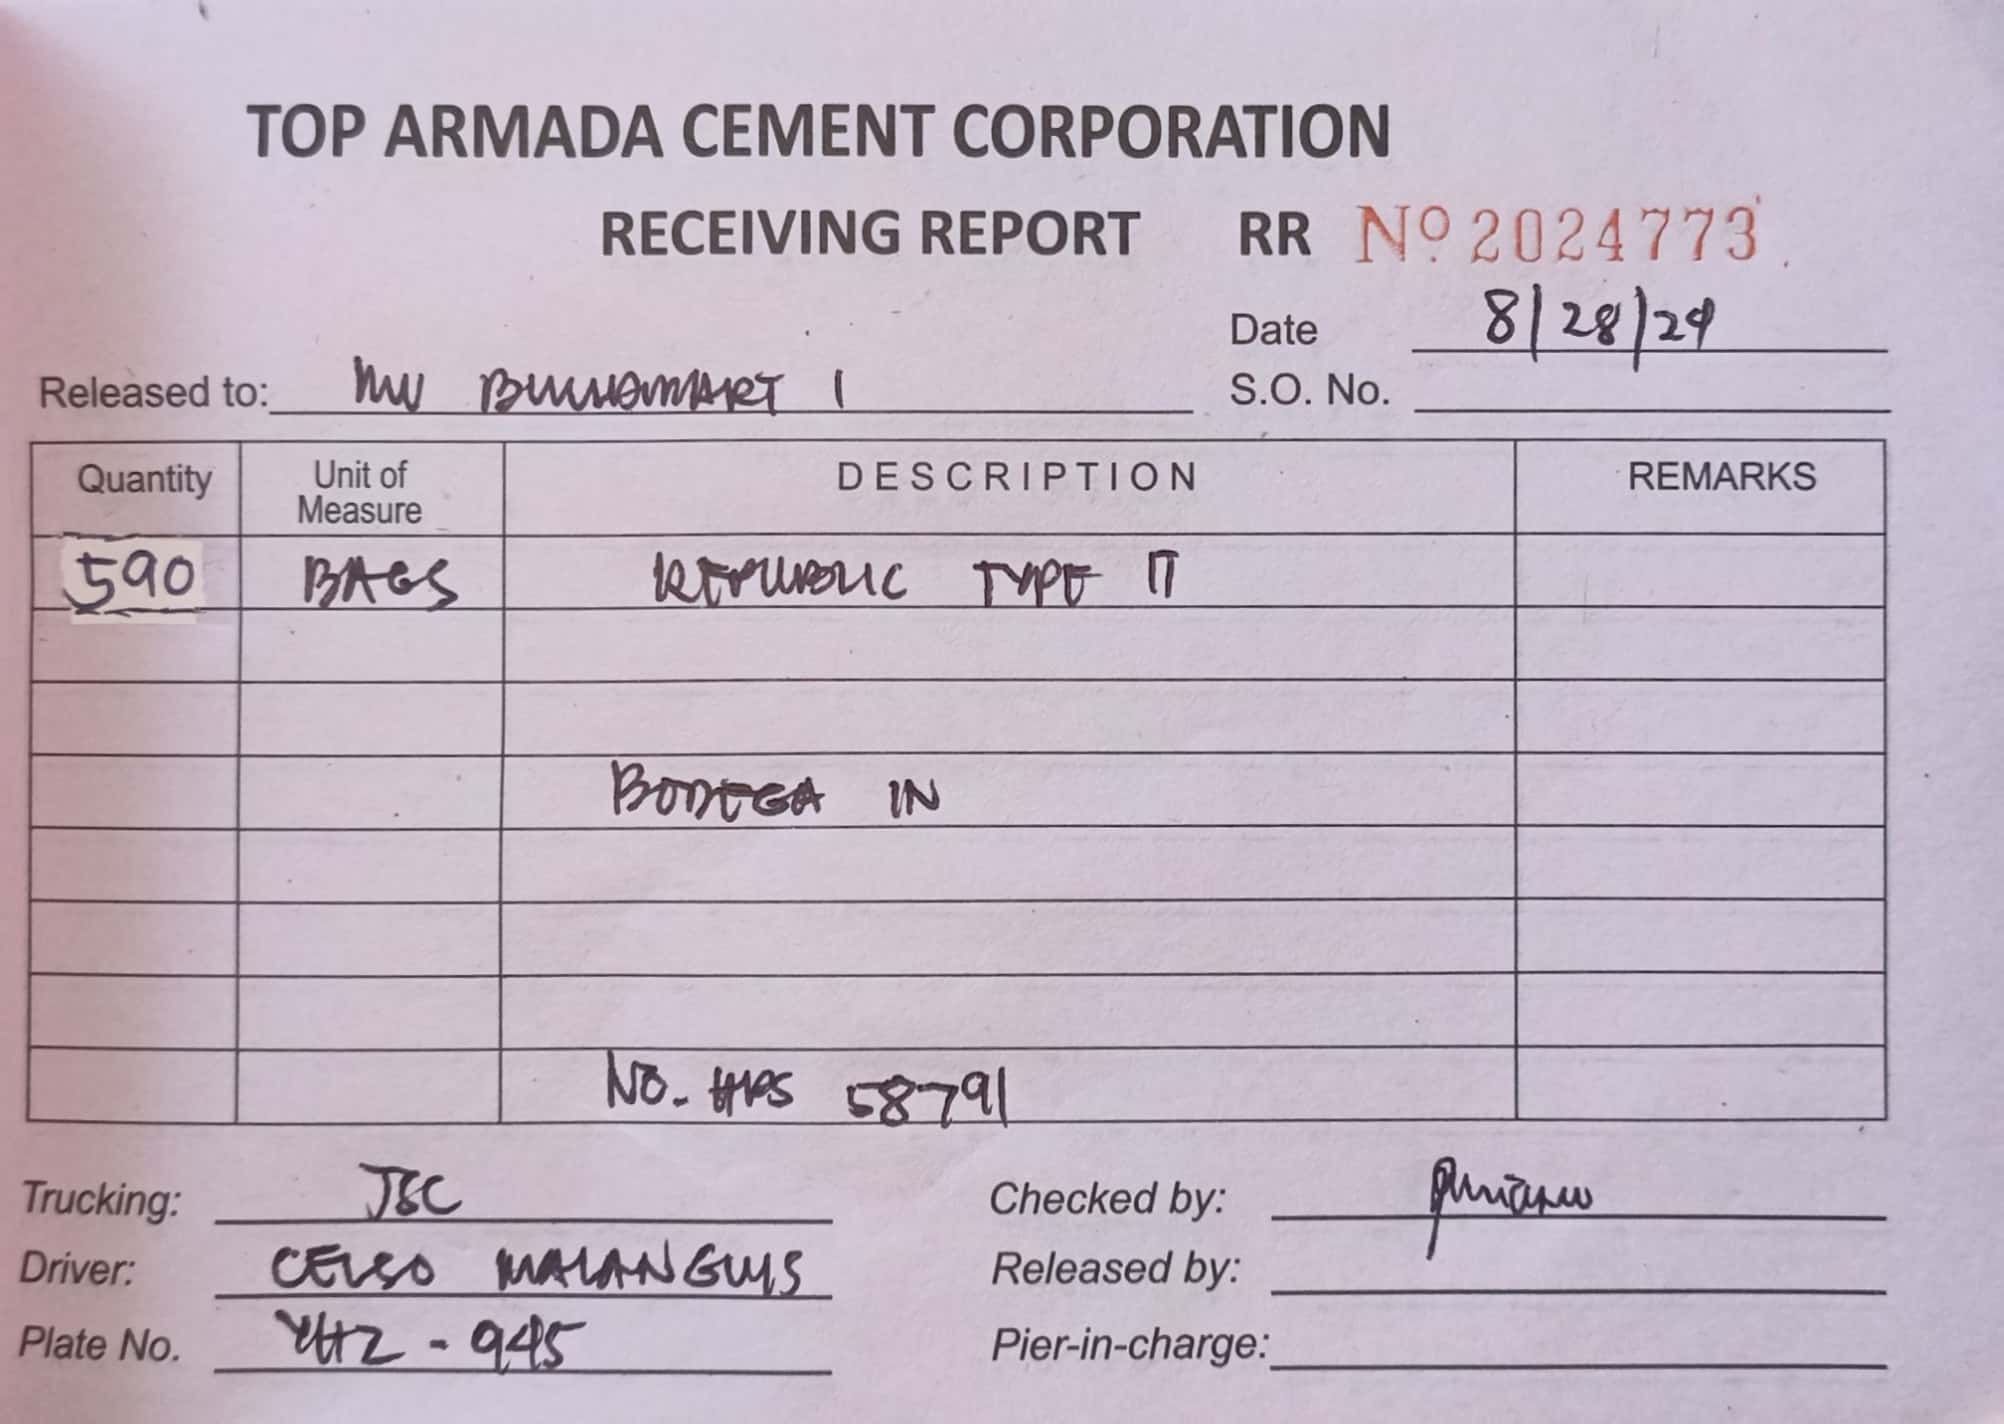 TOP ARMADA CEMENT CORPORATION
RECEIVING REPORT RR Nº 2024773
Date 8/28/24
Released to: MV BUILDMART 1 S.O. No.
Quantity Unit of Measure DESCRIPTION REMARKS
590 BAGS REPUBLIC TYPE IT
BODEGA IN
NO. HRS 58791
Trucking: JSC Checked by:
Driver: CELSO MALANGUIS Released by:
Plate No. YHZ - 945 Pier-in-charge: